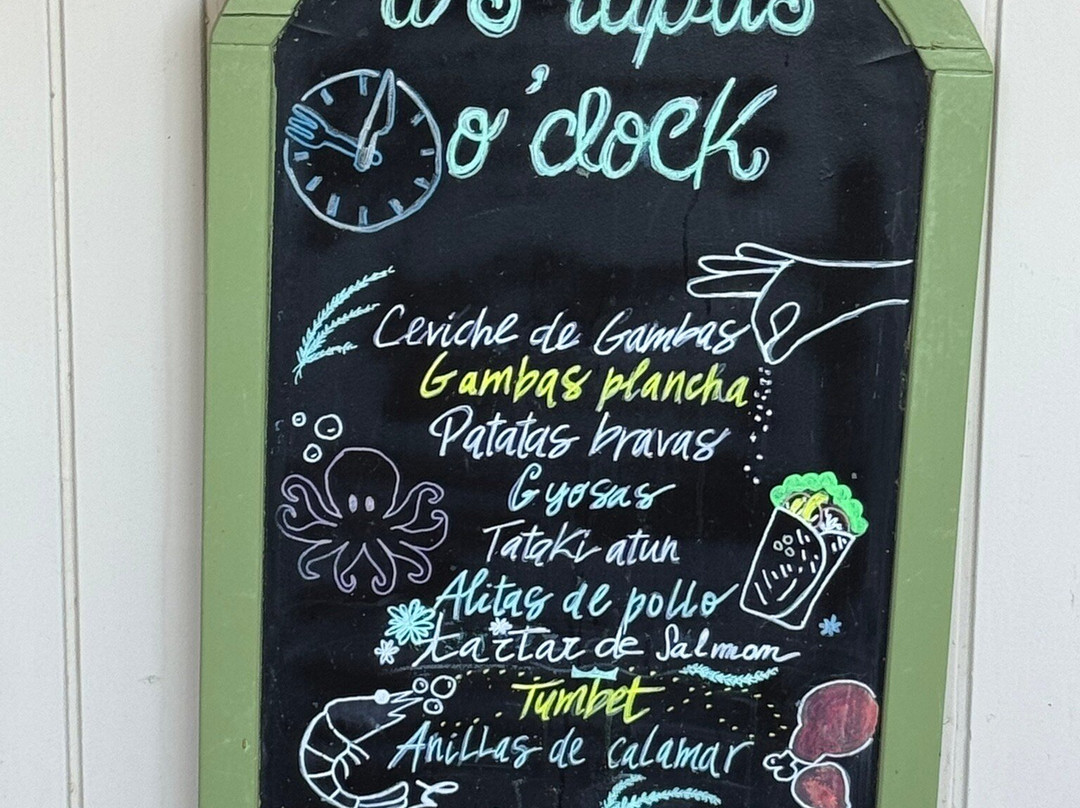 it's tapas
o'clock
Ceviche de Gambas
Gambas plancha
Patatas bravas
Gyosas
Tataki atun
Alitas de pollo
tartar de Salmon
Tumbet
Anillas de calamar